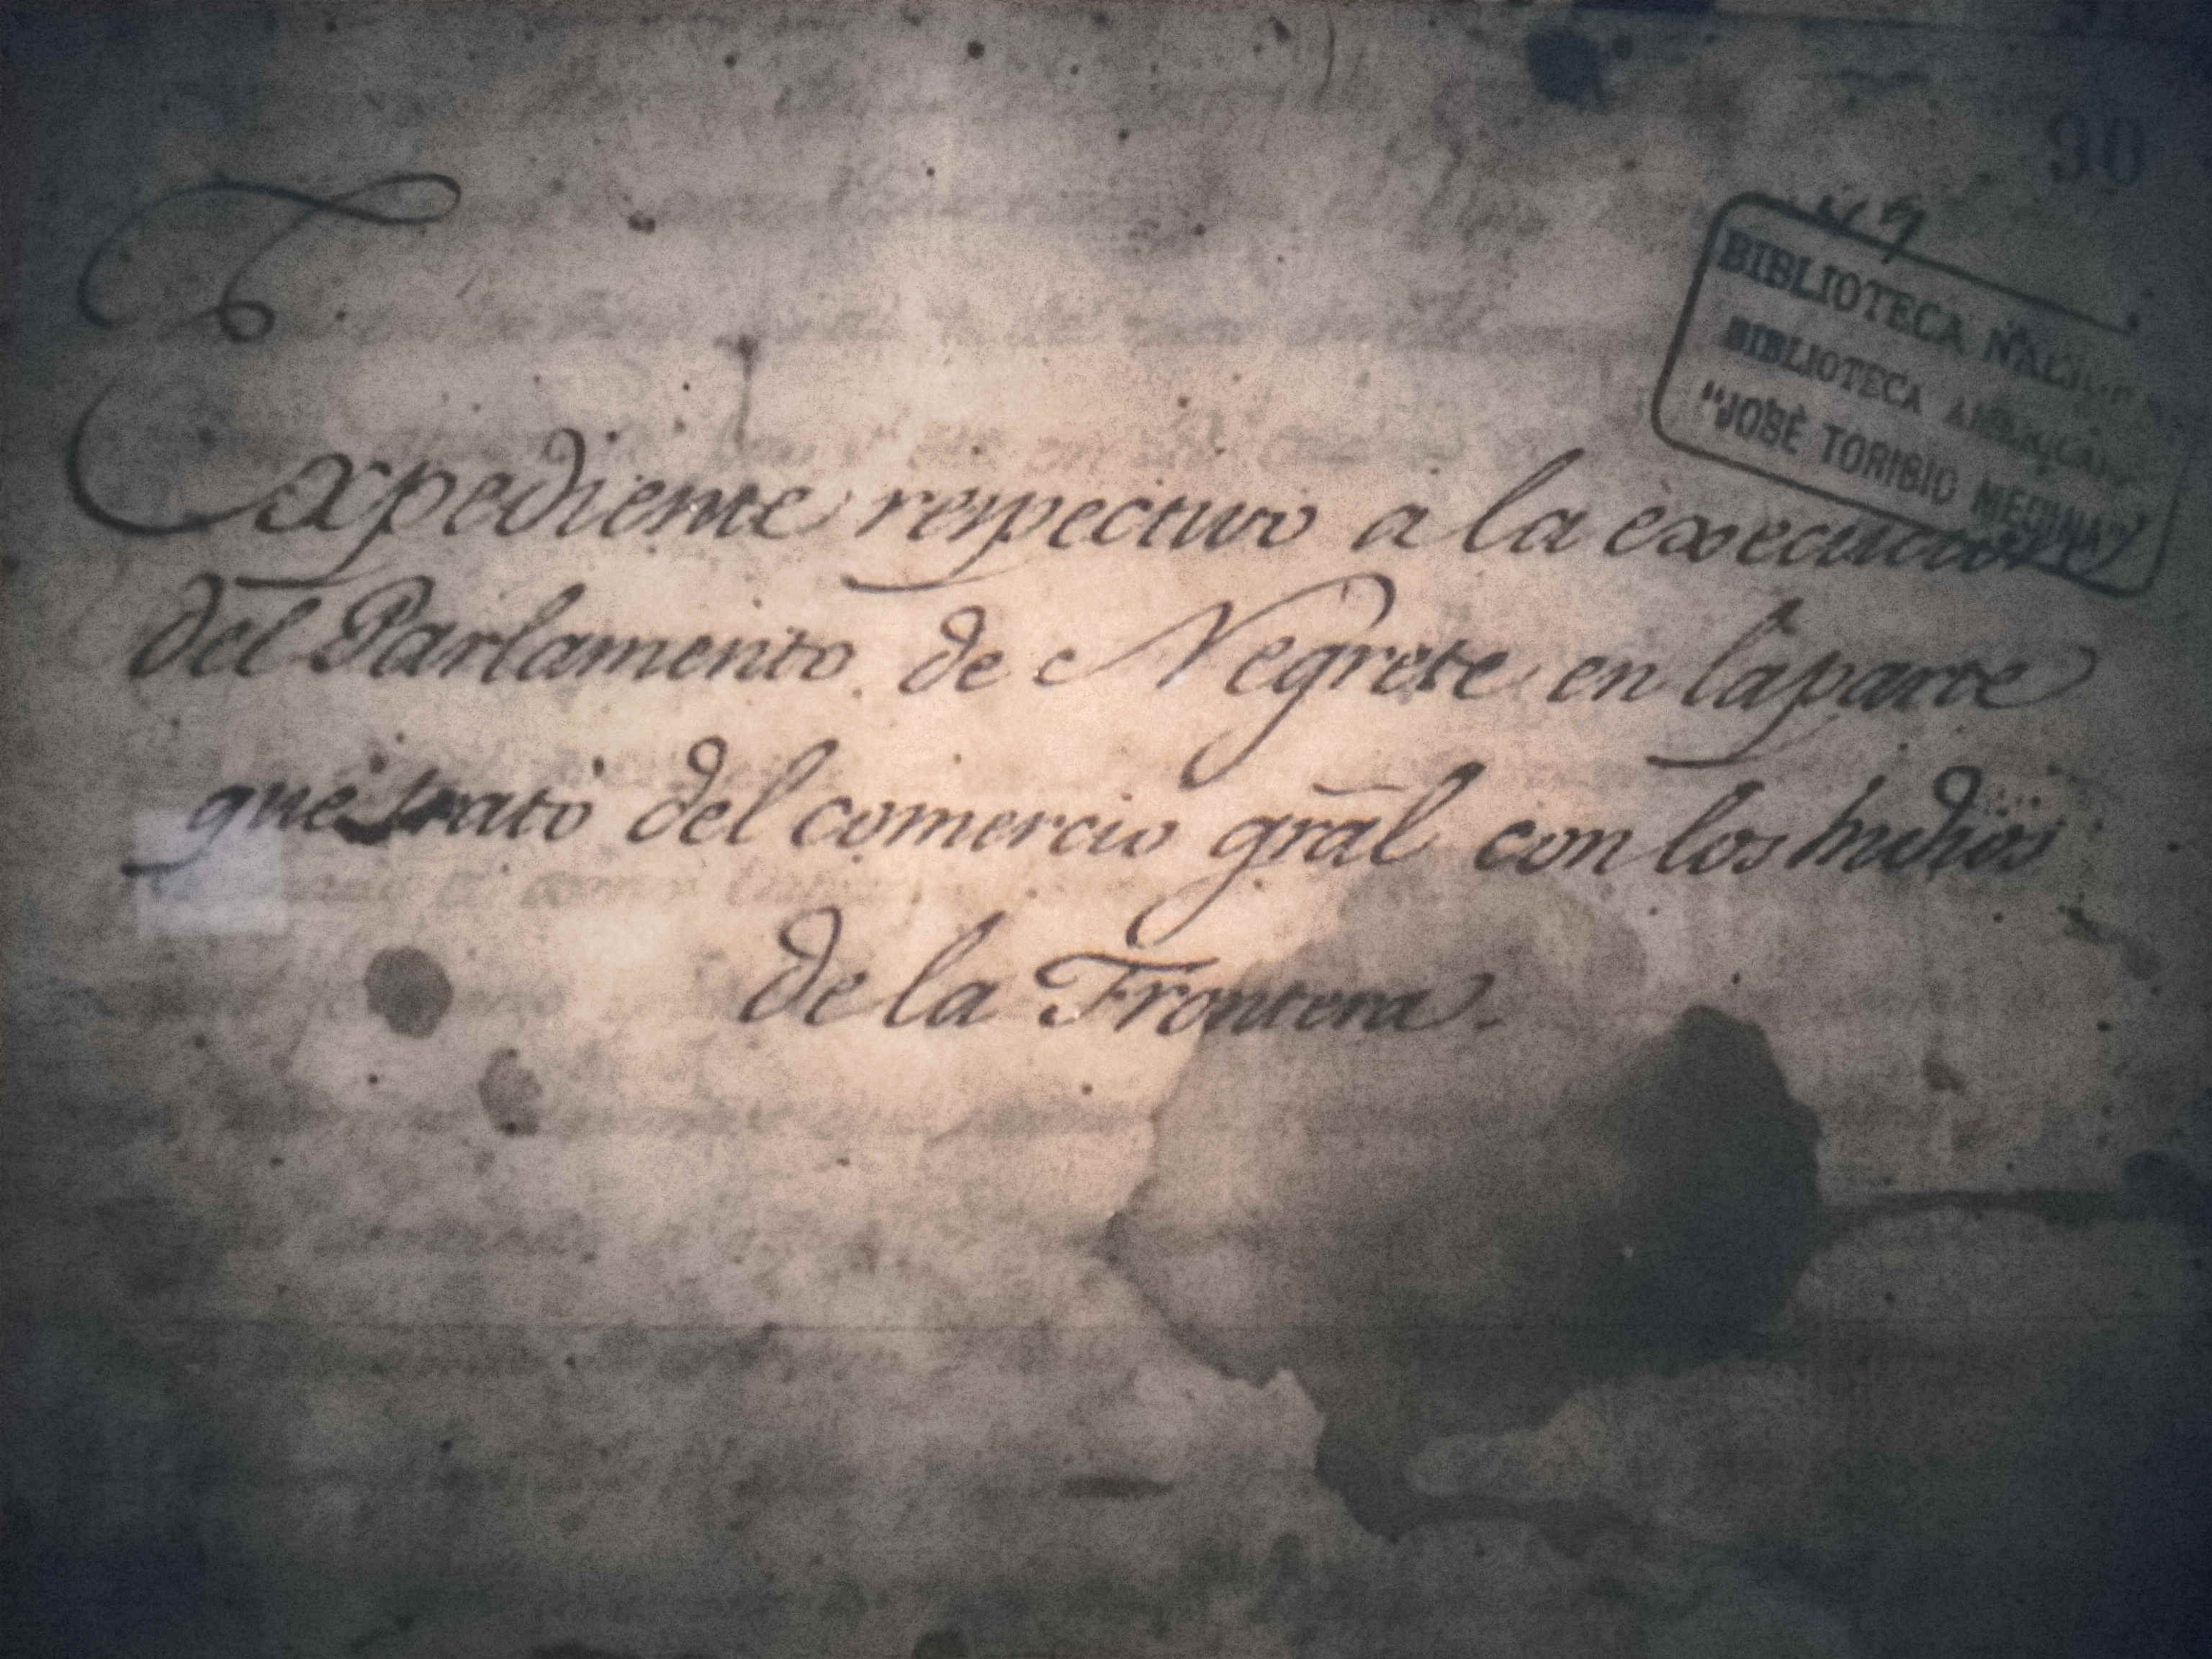 90
BIBLIOTECA NACIONAL
BIBLIOTECA AMERICANA
"JOSÉ TORIBIO MEDINA"
Expediente respectivo a la execucion
del Parlamento de Negrete en la parte
que trato del comercio gral con los Indios
de la Frontera.